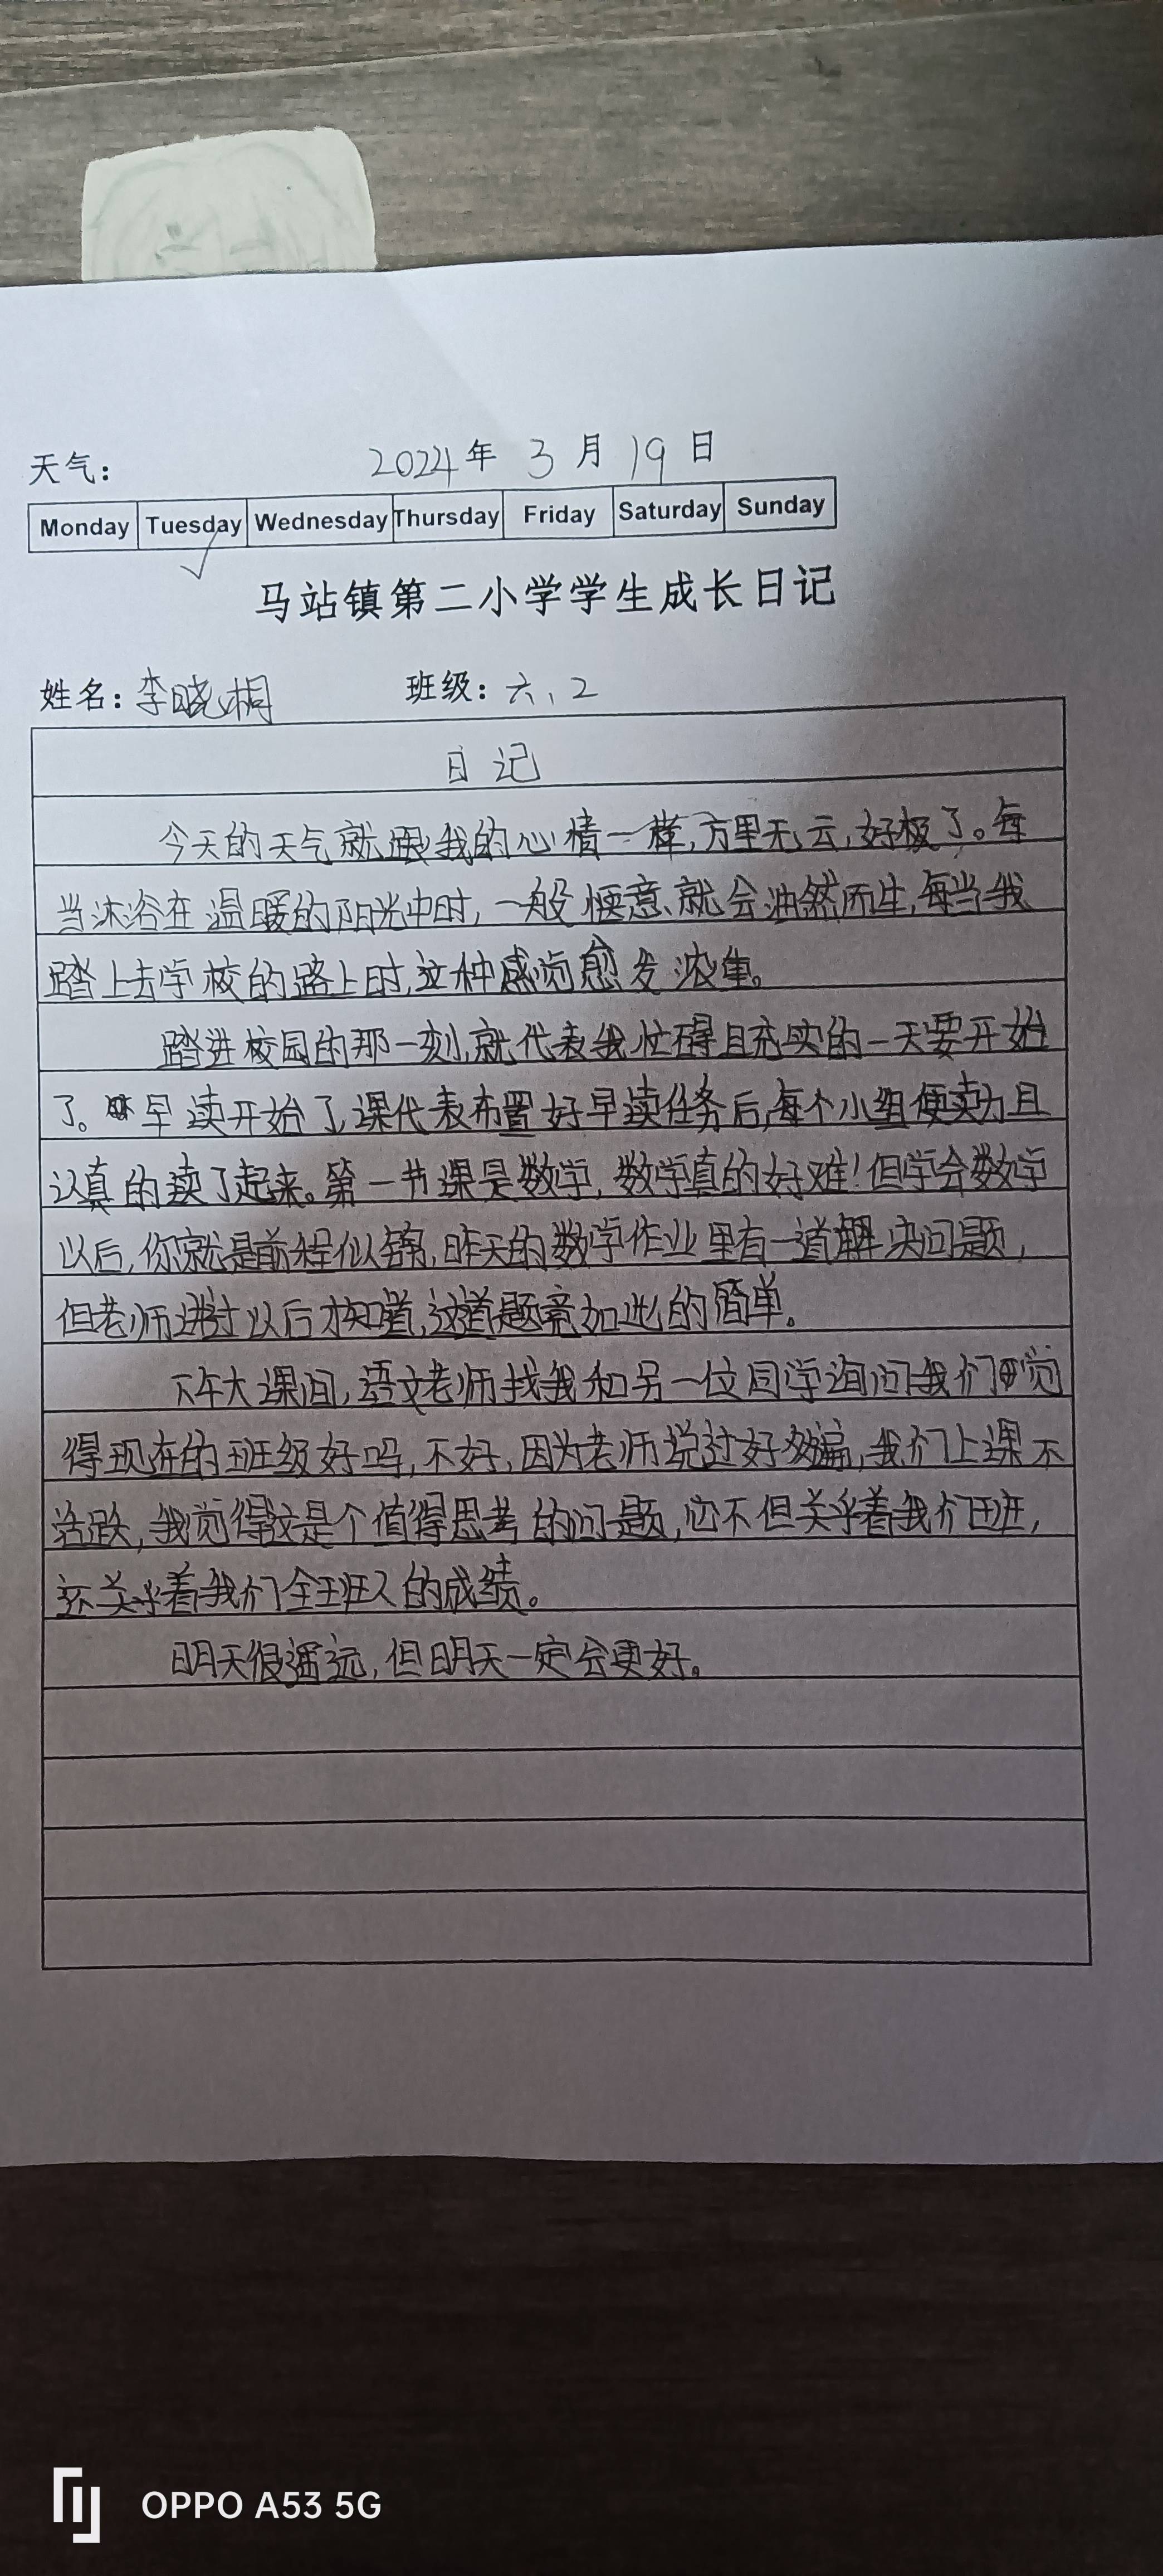 天气： 2024年 3月 19日
Monday Tuesday Wednesday Thursday Friday Saturday Sunday
马站镇第二小学学生成长日记
姓名：李晓桐 班级：六、2
日记
今天的天气就跟我的心情一样，万里无云，好极了。每
当沐浴在温暖的阳光中时，一般惬意就会油然而生，每当我
踏上去学校的路上时，这种感觉愈发浓重。
踏进校园的那一刻，就代表我忙碍且充实的一天要开始
了。早读开始了，课代表布置好早读任务后，每个小组便卖力且
认真的读了起来。第一节课是数学，数学真的好难！但学会数学
以后，你就是前程似锦，昨天的数学作业里有一道解决问题，
但老师讲过以后才知道，这道题竟如此的简单。
下午大课间，语文老师找我和另一位同学询问我们觉
得现在的班级好吗，不好，因为老师说过好多遍，我们上课不
活跃，我觉得这是个值得思考的问题，它不但关乎着我们班，
还关乎着我们全班人的成绩。
明天很遥远，但明天一定会更好。
OPPO A53 5G